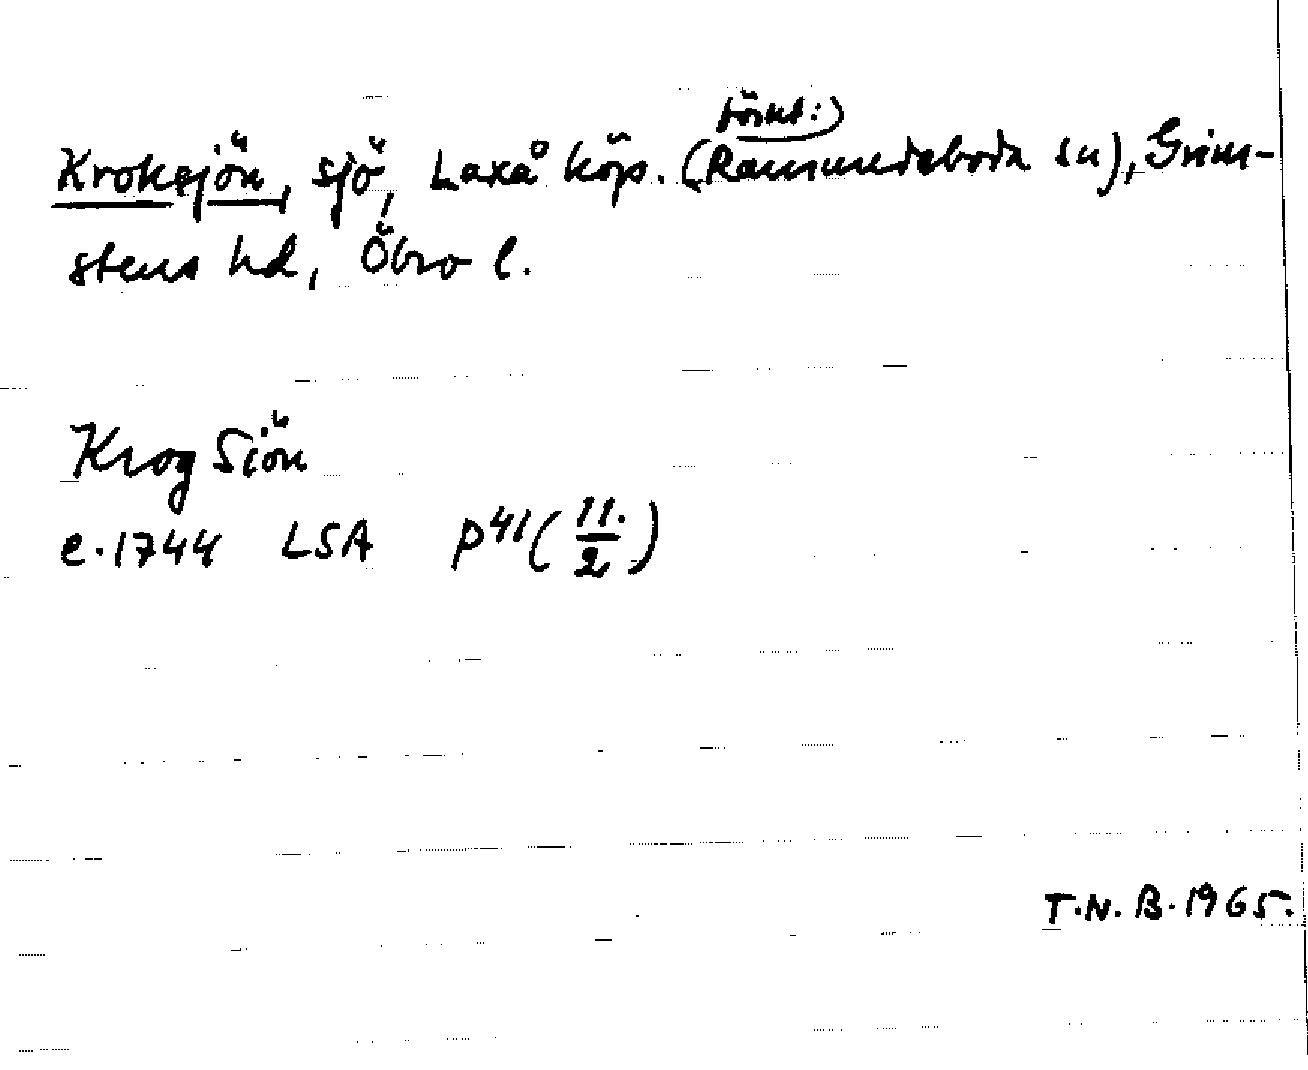 förut:)
Kroksjön, sjö, Laxå köp. (Ramundeboda sn), Grim-
stens hd, Öbro l.
Krog Siön
e. 1744 LSA P41 (11./2)
T.N.B. 1965.